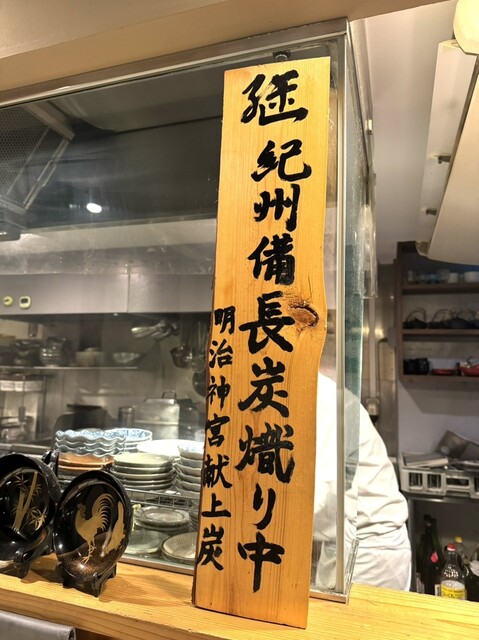 紀州備長炭熾り中
明治神宮献上炭